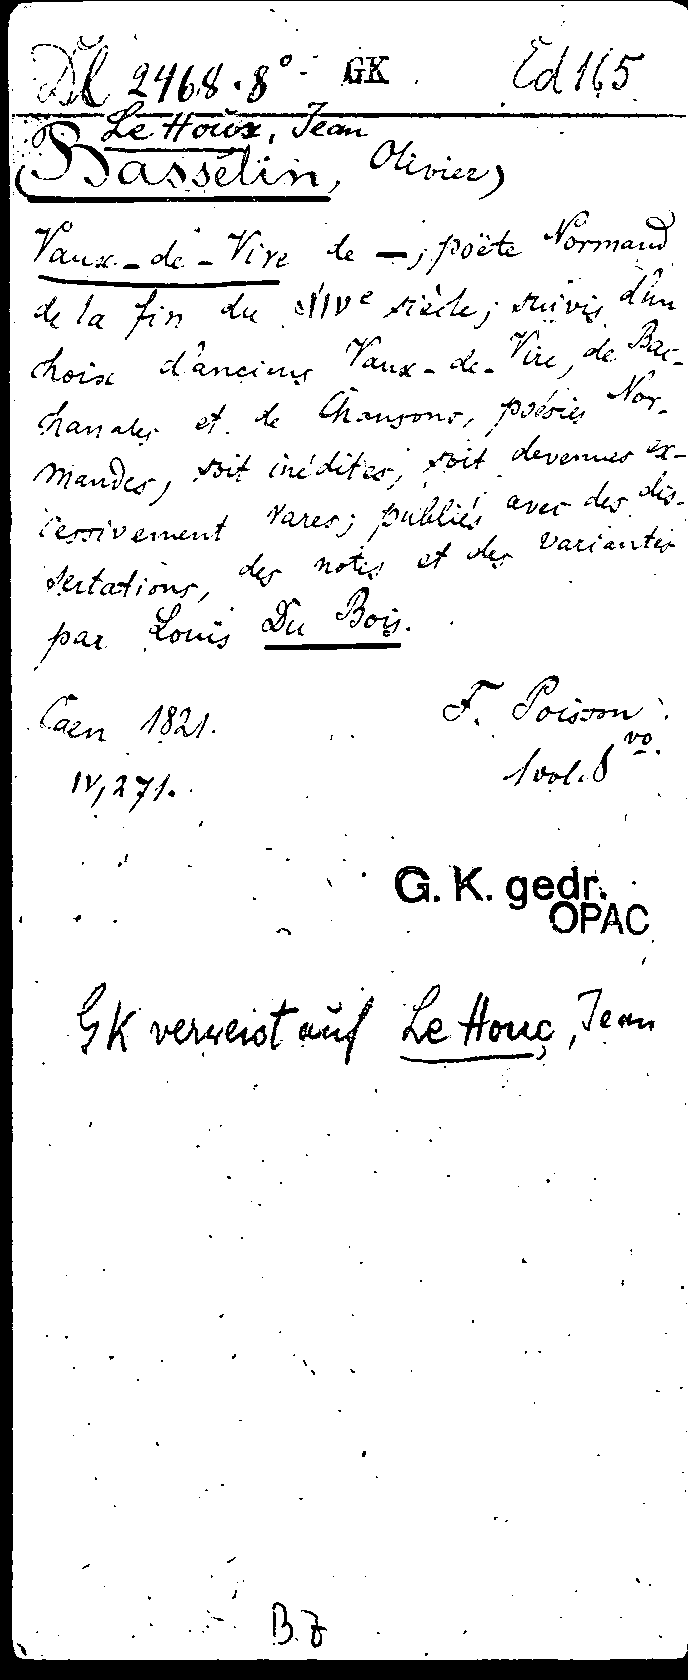 Dl 2468.8° GK Ed 165
Le Houx, Jean
(Basselin, Olivier)
Vaux-de-Vire de —, poëte Normand
de la fin du XIVe siècle; suivis d'un
choix d'anciens Vaux-de-Vire, de Bac-
chanales et de Chansons, poésies Nor-
mandes, soit inédites, soit devenues ex-
cessivement rares; publiés avec des dis-
sertations, des notes et des variantes
par Louis Du Bois.
Caen 1821. F. Poisson.
IV, 271. 1 vol. 8vo.
G. K. gedr.
OPAC
GK verweist auf Le Houc, Jean
B.Z